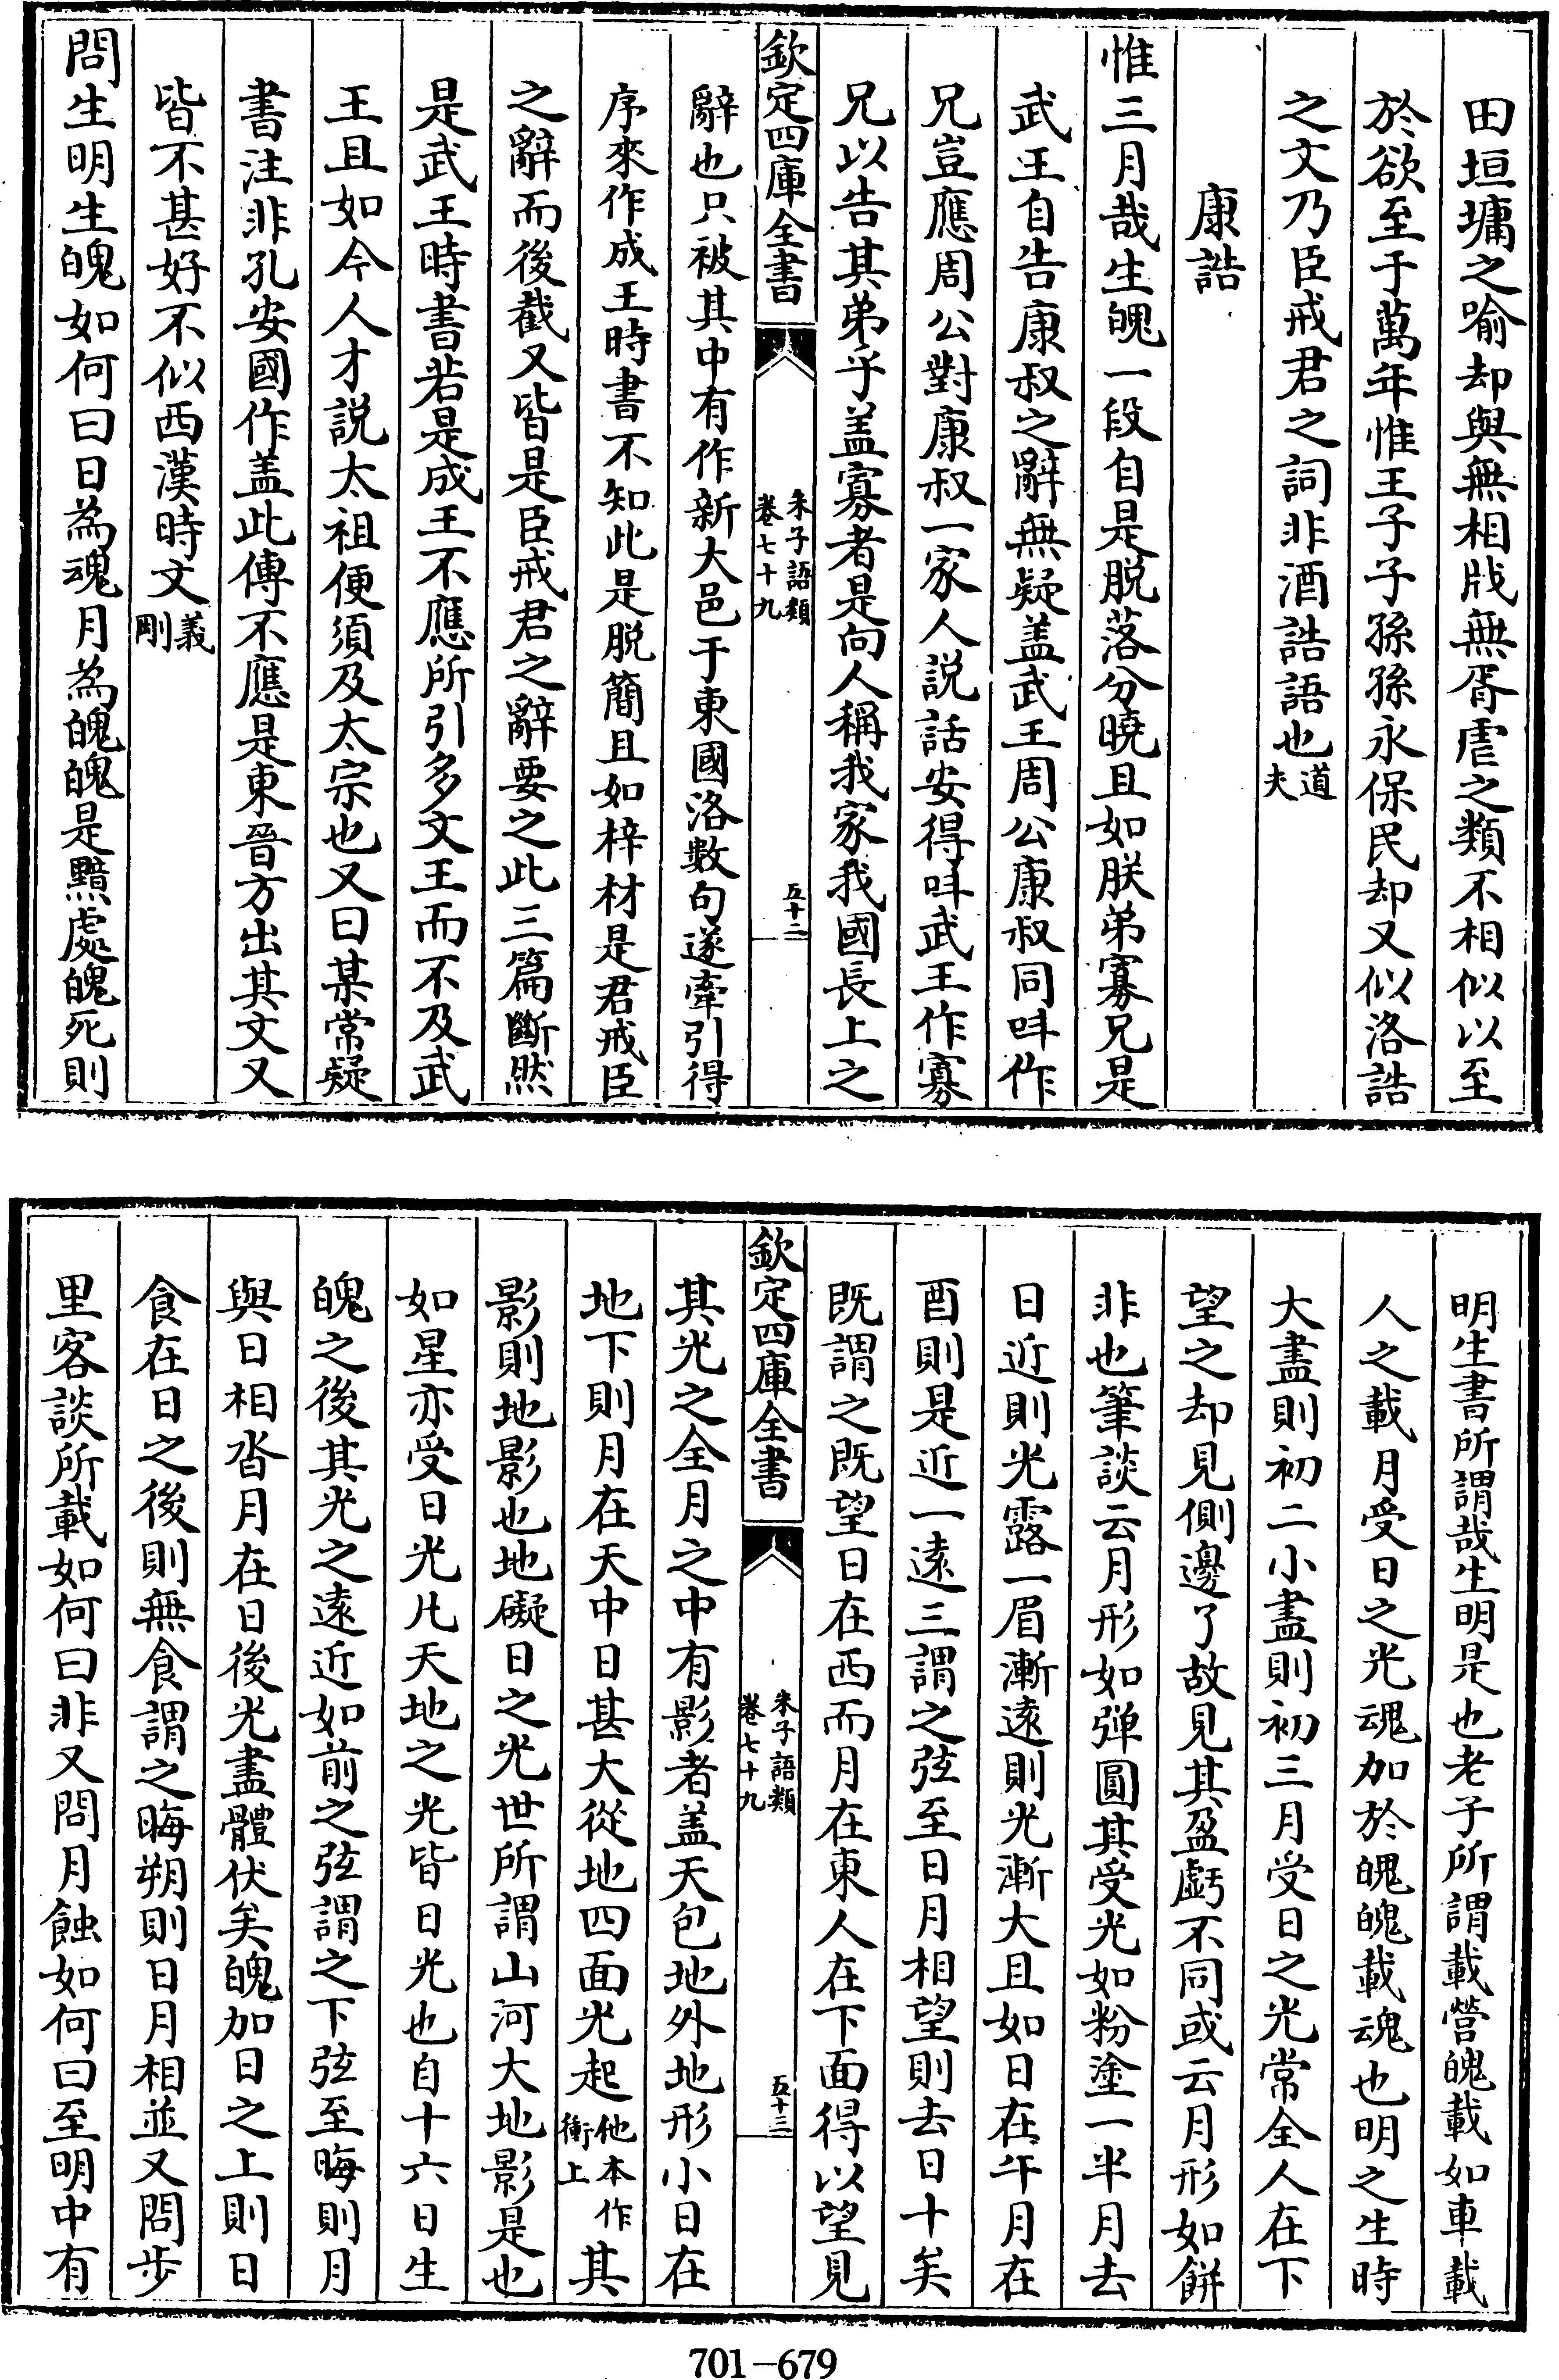 田垣墉之喻却與無相戕無胥虐之類不相似以至
於欲至于萬年惟王子子孫孫永保民却又似洛誥
之文乃臣戒君之詞非酒誥語也道夫
康誥
惟三月哉生魄一段自是脱落分曉且如朕弟寡兄是
武王自告康叔之辭無疑盖武王周公康叔同呌作
兄豈應周公對康叔一家人説話安得呌武王作寡
兄以告其弟乎盖寡者是向人稱我家我國長上之
欽定四庫全書
朱子語類
卷七十九
五十二
辭也只被其中有作新大邑于東國洛數句遂牽引得
序來作成王時書不知此是脱簡且如梓材是君戒臣
之辭而後截又皆是臣戒君之辭要之此三篇斷然
是武王時書若是成王不應所引多文王而不及武
王且如今人才説太祖便須及太宗也又曰某常疑
書注非孔安國作盖此傳不應是東晉方出其文又
皆不甚好不似西漢時文義剛
問生明生魄如何曰日為魂月為魄魄是黯處魄死則
明生書所謂哉生明是也老子所謂載營魄載如車載
人之載月受日之光魂加於魄魄載魂也明之生時
大盡則初二小盡則初三月受日之光常全人在下
望之却見側邊了故見其盈虧不同或云月形如餅
非也筆談云月形如彈圓其受光如粉塗一半月去
日近則光露一眉漸逺則光漸大且如日在午月在
酉則是近一逺三謂之弦至日月相望則去日十矣
既謂之既望日在西而月在東人在下面得以望見
欽定四庫全書
朱子語類
卷七十九
五十三
其光之全月之中有影者盖天包地外地形小日在
地下則月在天中日甚大從地四面光起他本作衝上其
影則地影也地礙日之光世所謂山河大地影是也
如星亦受日光凡天地之光皆日光也自十六日生
魄之後其光之逺近如前之弦謂之下弦至晦則月
與日相沓月在日後光盡體伏矣魄加日之上則日
食在日之後則無食謂之晦朔則日月相並又問步
里客談所載如何曰非又問月蝕如何曰至明中有
701-679